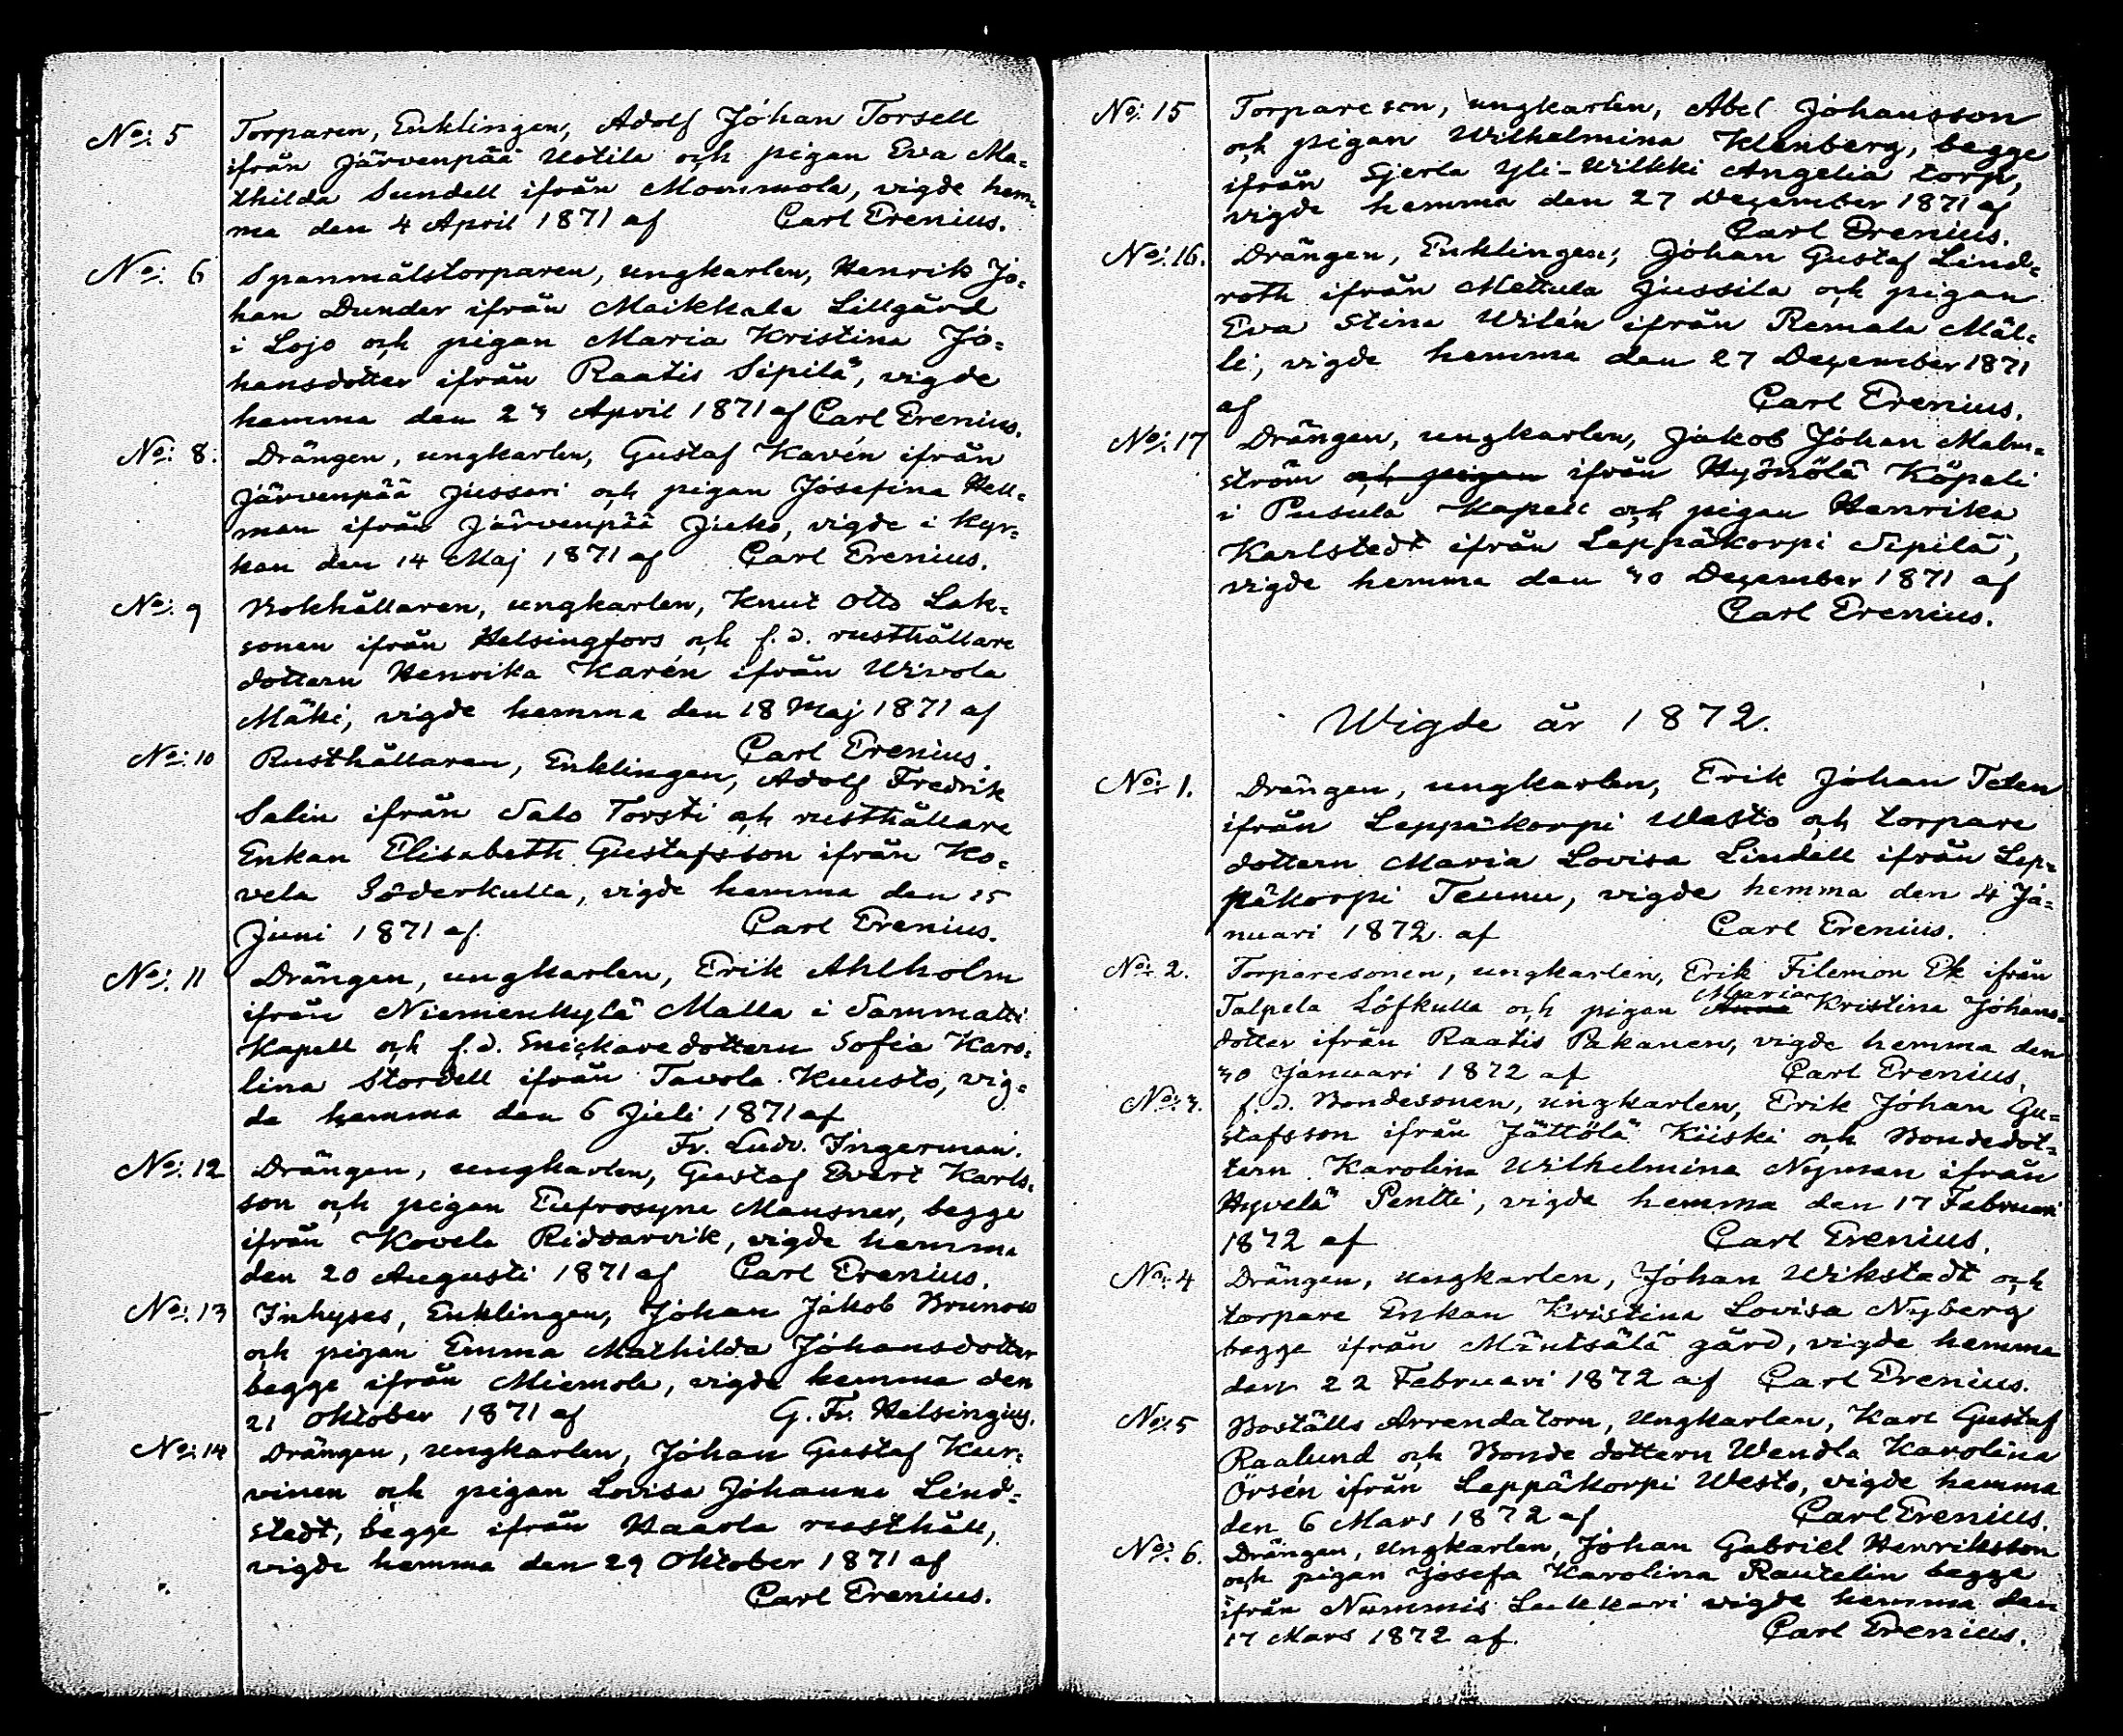 No: 5 Torparen, Enklingen, Adolf Johan Torsell
ifrån Järvenpää Ustila och pigan Eva Ma=
thilda Sundell ifrån Mommola, vigde hem=
ma den 4 April 1871 af Carl Erenius.
No: 6 Spanmålstorparen, ungkarlen, Henrik Jo=
han Dunder ifrån Maikkala Lillgård
i Lojo och pigan Maria Kristina Jo=
hansdotter ifrån Raatis Sipilä, vigde
hemma den 23 April 1871 af Carl Erenius.
No: 8. Drängen, ungkarlen, Gustaf Kavén ifrån
Järvenpää Jussari och pigan Josefina Hell=
man ifrån Järvenpää Juko, vigde i Kyr=
kan den 14 Maj 1871 af Carl Erenius.
No: 9 Bokhållaren, ungkarlen, Knut Otto Lak=
sonen ifrån Helsingfors och f.d. rusthållare
dottern Henrika Karén ifrån Wivola
Mäki, vigde hemma den 18 Maj 1871 af
Carl Erenius.
No: 10 Rusthållaren, Enklingen, Adolf Fredrik
Salin ifrån Salo Torsti och rusthållare
Enkan Elisabeth Gustafsson ifrån Ko=
vela Söderkulla, vigde hemma den 15
Juni 1871 af Carl Erenius.
No: 11 Drängen, ungkarlen, Erik Ahlholm
ifrån Niemenkylä Malla i Sammatti
Kapell och f.d. Snickare dottern Sofia Karo=
lina Stordell ifrån Tavola Kuusto, vig=
de hemma den 6 Juli 1871 af
Fr. Ludv. Ingerman.
No: 12 Drängen, ungkarlen, Gustaf Evert Karls=
son och pigan Eufrosyne Mausner, begge
ifrån Kovela Riddarvik, vigde hemma
den 20 Augusti 1871 af Carl Erenius.
No: 13 Inhyses, Enklingen, Johan Jakob Brunow
och pigan Emma Mathilda Johansdotter
begge ifrån Miemola, vigde hemma den
21 Oktober 1871 af G. Fr. Helsingius.
No: 14 Drängen, ungkarlen, Johan Gustaf Kur=
vinen och pigan Lovisa Johanna Lind=
stedt, begge ifrån Haarla rusthåll,
vigde hemma den 29 Oktober 1871 af
Carl Erenius.
No: 15 Torpare son, ungkarlen, Abel Johansson
och pigan Wilhelmina Klenberg, begge
ifrån Gjerla Yli-Wilkki Angelia torp,
vigde hemma den 27 December 1871 af
Carl Erenius.
No: 16. Drängen, Enklingen, Johan Gustaf Lind=
roth ifrån Mettula Jussila och pigan
Eva Stina Wilén ifrån Remala Mäl=
li, vigde hemma den 27 December 1871
af Carl Erenius.
No: 17 Drängen, ungkarlen, Jakob Johan Malm=
ström och pigan ifrån Hyönölä Köpeli
i Pusula Kapell och pigan Henrika
Karlstedt ifrån Leppäkorpi Sipilä,
vigde hemma den 30 December 1871 af
Carl Erenius.
Wigde år 1872.
No: 1. Drängen, ungkarlen, Erik Johan Telen
ifrån Leppäkorpi Westo och torpare
dottern Maria Lovisa Lindell ifrån Lep=
päkorpi Teunu, vigde hemma den 4 Ja=
nuari 1872 af Carl Erenius.
No: 2. Torparesonen, ungkarlen, Erik Filemon Ek ifrån
Talpela Löfkulla och pigan Anna Maria Kristina Johans=
dotter ifrån Raatis Pakanen, vigde hemma den
30 Januari 1872 af Carl Erenius.
No: 3. f.d. Bondesonen, ungkarlen, Erik Johan Gu=
stafsson ifrån Jättölä Kiiski och Bondedot=
tern Karolina Wilhelmina Nyman ifrån
Hyvelä Pentti, vigde hemma den 17 Februari
1872 af Carl Erenius.
No: 4 Drängen, ungkarlen, Johan Wikstedt och
torpare Enkan Kristina Lovisa Nyberg
begge ifrån Mäntsälä gård, vigde hemma
den 22 Februari 1872 af Carl Erenius.
No: 5 Boställs Arrendatorn, Ungkarlen, Karl Gustaf
Raalund och Bonde dottern Wendla Karolina
Örsén ifrån Leppäkorpi Westo, vigde hemma
den 6 Mars 1872 af Carl Erenius.
No: 6. Drängen, Ungkarlen, Johan Gabriel Henriksson
och pigan Josefa Karolina Rautelin begge
ifrån Nummis Lukkari vigde hemma den
17 Mars 1872 af Carl Erenius.